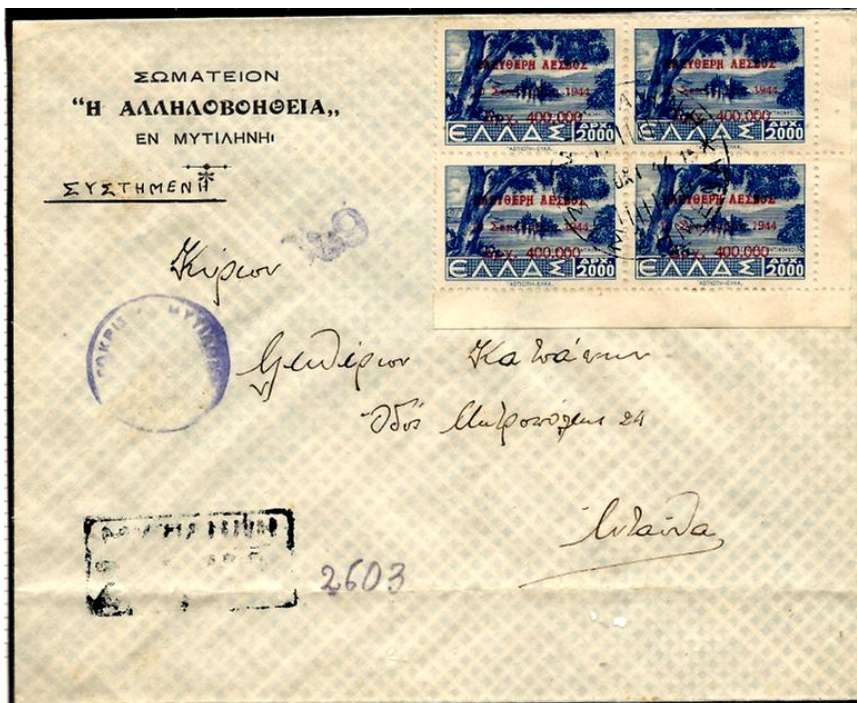 ΣΩΜΑΤΕΙΟΝ
"Η ΑΛΛΗΛΟΒΟΗΘΕΙΑ,,
ΕΝ ΜΥΤΙΛΗΝΗι
ΣΥΣΤΗΜΕΝΗ
ΕΛΕΥΘΕΡΗ ΛΕΣΒΟΣ
Σεπτεμβρίου 1944
Δρχ. 400.000
ΕΛΛΑΣ ΔΡΧ. 2000
ΕΛΕΥΘΕΡΗ ΛΕΣΒΟΣ
Σεπτεμβρίου 1944
Δρχ. 400.000
ΕΛΛΑΣ ΔΡΧ. 2000
ΕΛΕΥΘΕΡΗ ΛΕΣΒΟΣ
Σεπτεμβρίου 1944
Δρχ. 400.000
ΕΛΛΑΣ ΔΡΧ. 2000
ΕΛΕΥΘΕΡΗ ΛΕΣΒΟΣ
Σεπτεμβρίου 1944
Δρχ. 400.000
ΕΛΛΑΣ ΔΡΧ. 2000
Κύριον
Ελευθέριον
Οδός Μητροπόλεως 24
Ενταύθα
2603